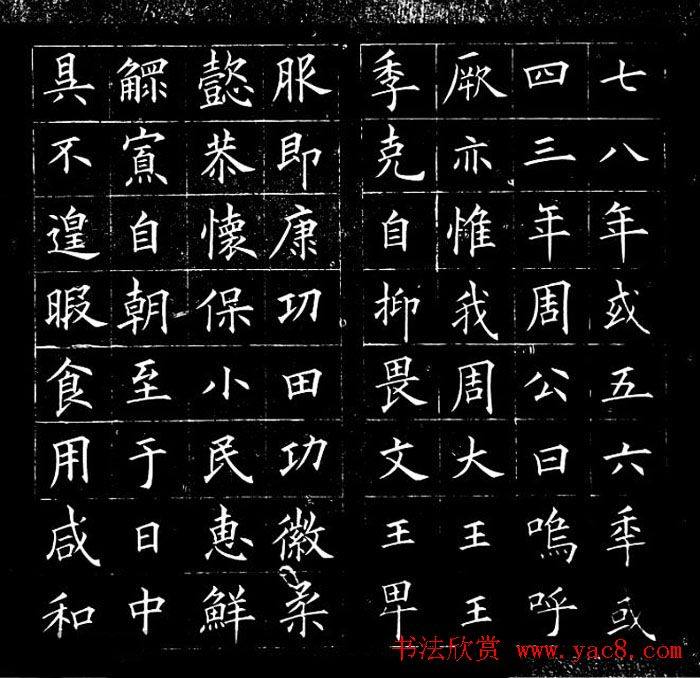 七八年或五六年或
四三年周公曰嗚呼
厥亦惟我周大王王
季克自抑畏文王卑
服即康功田功徽柔
懿恭懷保小民惠鮮
鰥寡自朝至于日中
昃不遑暇食用咸和
书法欣赏 www.yac8.com